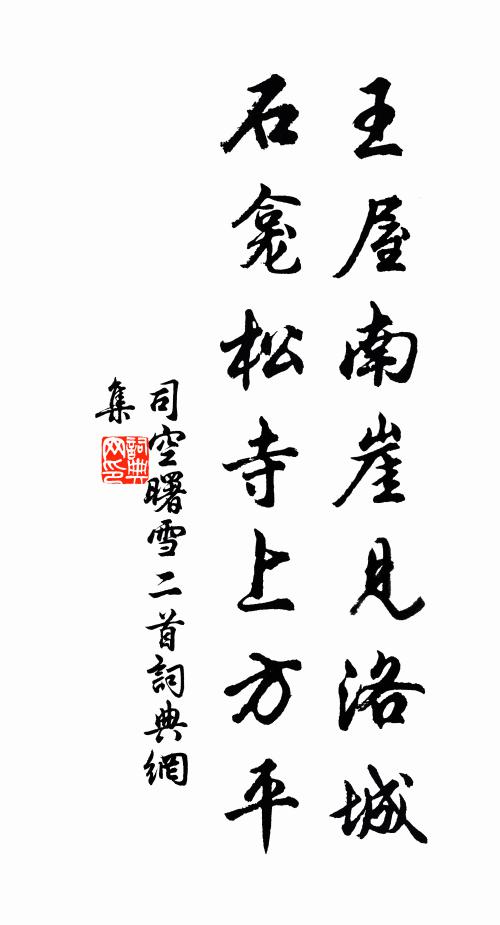 王屋南崖見洛城
石龕松寺上方平
司空曙雪二首詞典網
集
詞典網印